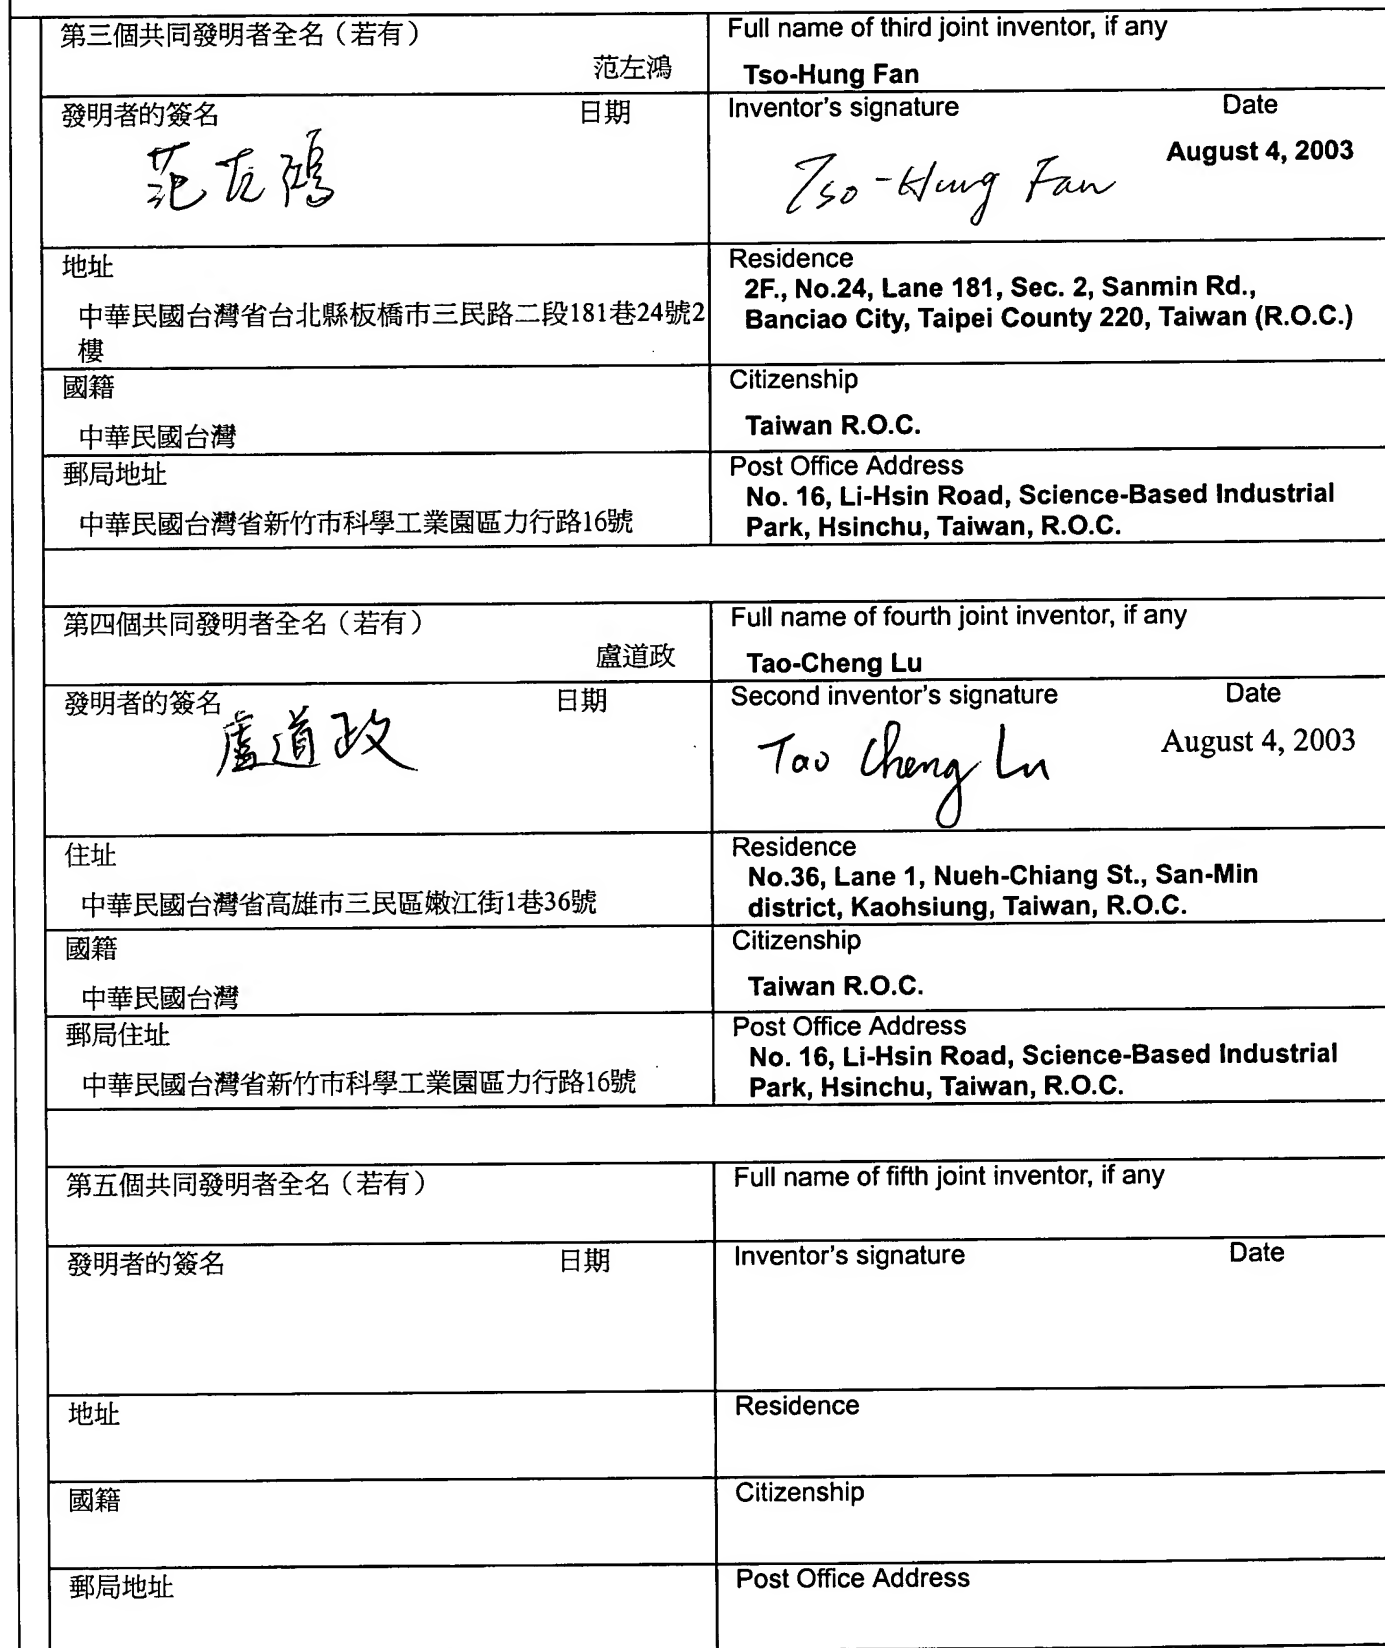 第三個共同發明者全名（若有）
范左鴻
Full name of third joint inventor, if any
Tso-Hung Fan
發明者的簽名 日期
范左鴻
Inventor's signature Date
August 4, 2003
Tso-Hung Fan
地址
中華民國台灣省台北縣板橋市三民路二段181巷24號2
樓
Residence
2F., No.24, Lane 181, Sec. 2, Sanmin Rd.,
Banciao City, Taipei County 220, Taiwan (R.O.C.)
國籍
中華民國台灣
Citizenship
Taiwan R.O.C.
郵局地址
中華民國台灣省新竹市科學工業園區力行路16號
Post Office Address
No. 16, Li-Hsin Road, Science-Based Industrial
Park, Hsinchu, Taiwan, R.O.C.
第四個共同發明者全名（若有）
盧道政
Full name of fourth joint inventor, if any
Tao-Cheng Lu
發明者的簽名 日期
盧道政
Second inventor's signature Date
August 4, 2003
Tao Cheng Lu
住址
中華民國台灣省高雄市三民區嫩江街1巷36號
Residence
No.36, Lane 1, Nueh-Chiang St., San-Min
district, Kaohsiung, Taiwan, R.O.C.
國籍
中華民國台灣
Citizenship
Taiwan R.O.C.
郵局住址
中華民國台灣省新竹市科學工業園區力行路16號
Post Office Address
No. 16, Li-Hsin Road, Science-Based Industrial
Park, Hsinchu, Taiwan, R.O.C.
第五個共同發明者全名（若有）
Full name of fifth joint inventor, if any
發明者的簽名 日期
Inventor's signature Date
地址
Residence
國籍
Citizenship
郵局地址
Post Office Address